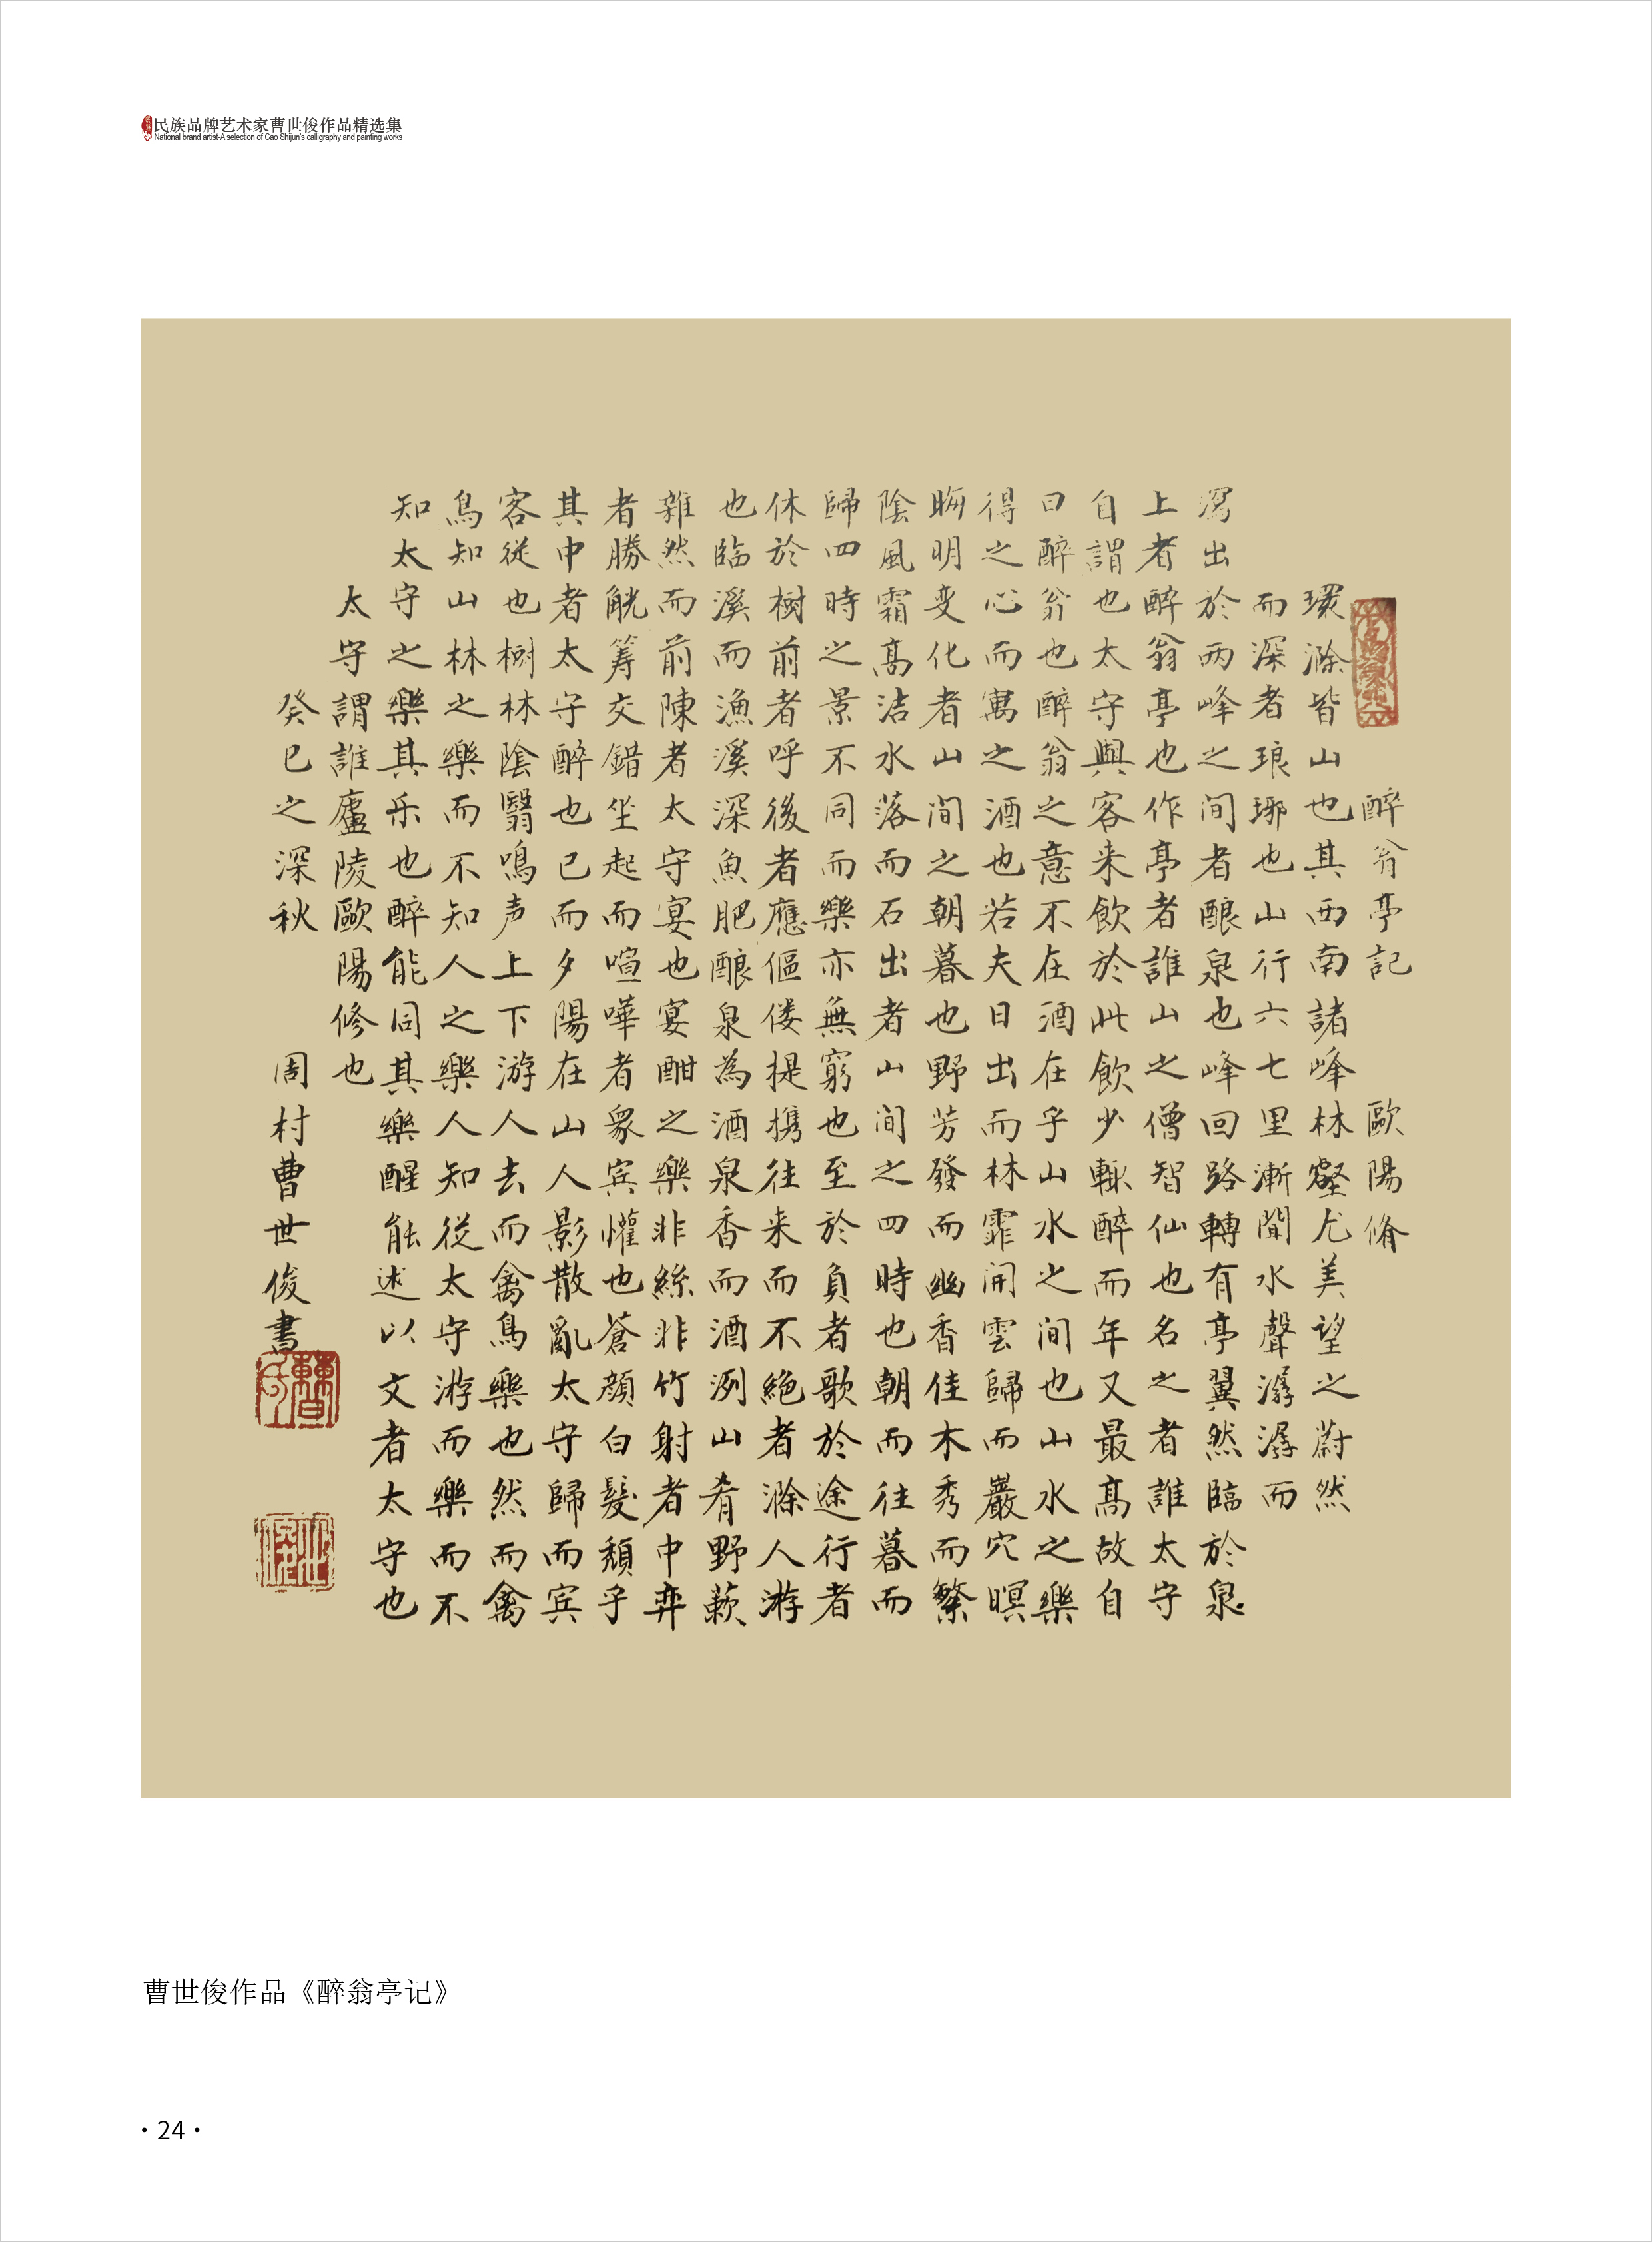 民族品牌艺术家曹世俊作品精选集
National brand artist-A selection of Cao Shijun's calligraphy and painting works
醉翁亭記 歐陽脩
環滁皆山也其西南諸峰林壑尤美望之蔚然
而深者琅琊也山行六七里漸聞水聲潺潺而
瀉出於兩峰之间者酿泉也峰回路轉有亭翼然臨於泉
上者醉翁亭也作亭者誰山之僧智仙也名之者誰太守
自謂也太守與客来飲於此飲少輒醉而年又最髙故自
曰醉翁也醉翁之意不在酒在乎山水之间也山水之樂
得之心而寓之酒也若夫日出而林霏开雲歸而巖穴暝
晦明变化者山间之朝暮也野芳發而幽香佳木秀而繁
陰風霜髙洁水落而石出者山间之四時也朝而往暮而
歸四時之景不同而樂亦無窮也至於負者歌於途行者
休於樹前者呼後者應傴偻提携往来而不絶者滁人游
也臨溪而漁溪深魚肥酿泉為酒泉香而酒洌山肴野蔌
雜然而前陳者太守宴也宴酣之樂非絲非竹射者中弈
者勝觥筹交錯坐起而喧嘩者衆宾懽也蒼顔白髮頹乎
其中者太守醉也已而夕陽在山人影散亂太守歸而宾
客従也樹林陰翳鳴声上下游人去而禽鳥樂也然而禽
鳥知山林之樂而不知人之樂人知従太守游而樂而不
知太守之樂其乐也醉能同其樂醒能述以文者太守也
太守謂誰廬陵歐陽修也
癸巳之深秋 周村曹世俊書
曹世俊作品《醉翁亭记》
· 24 ·